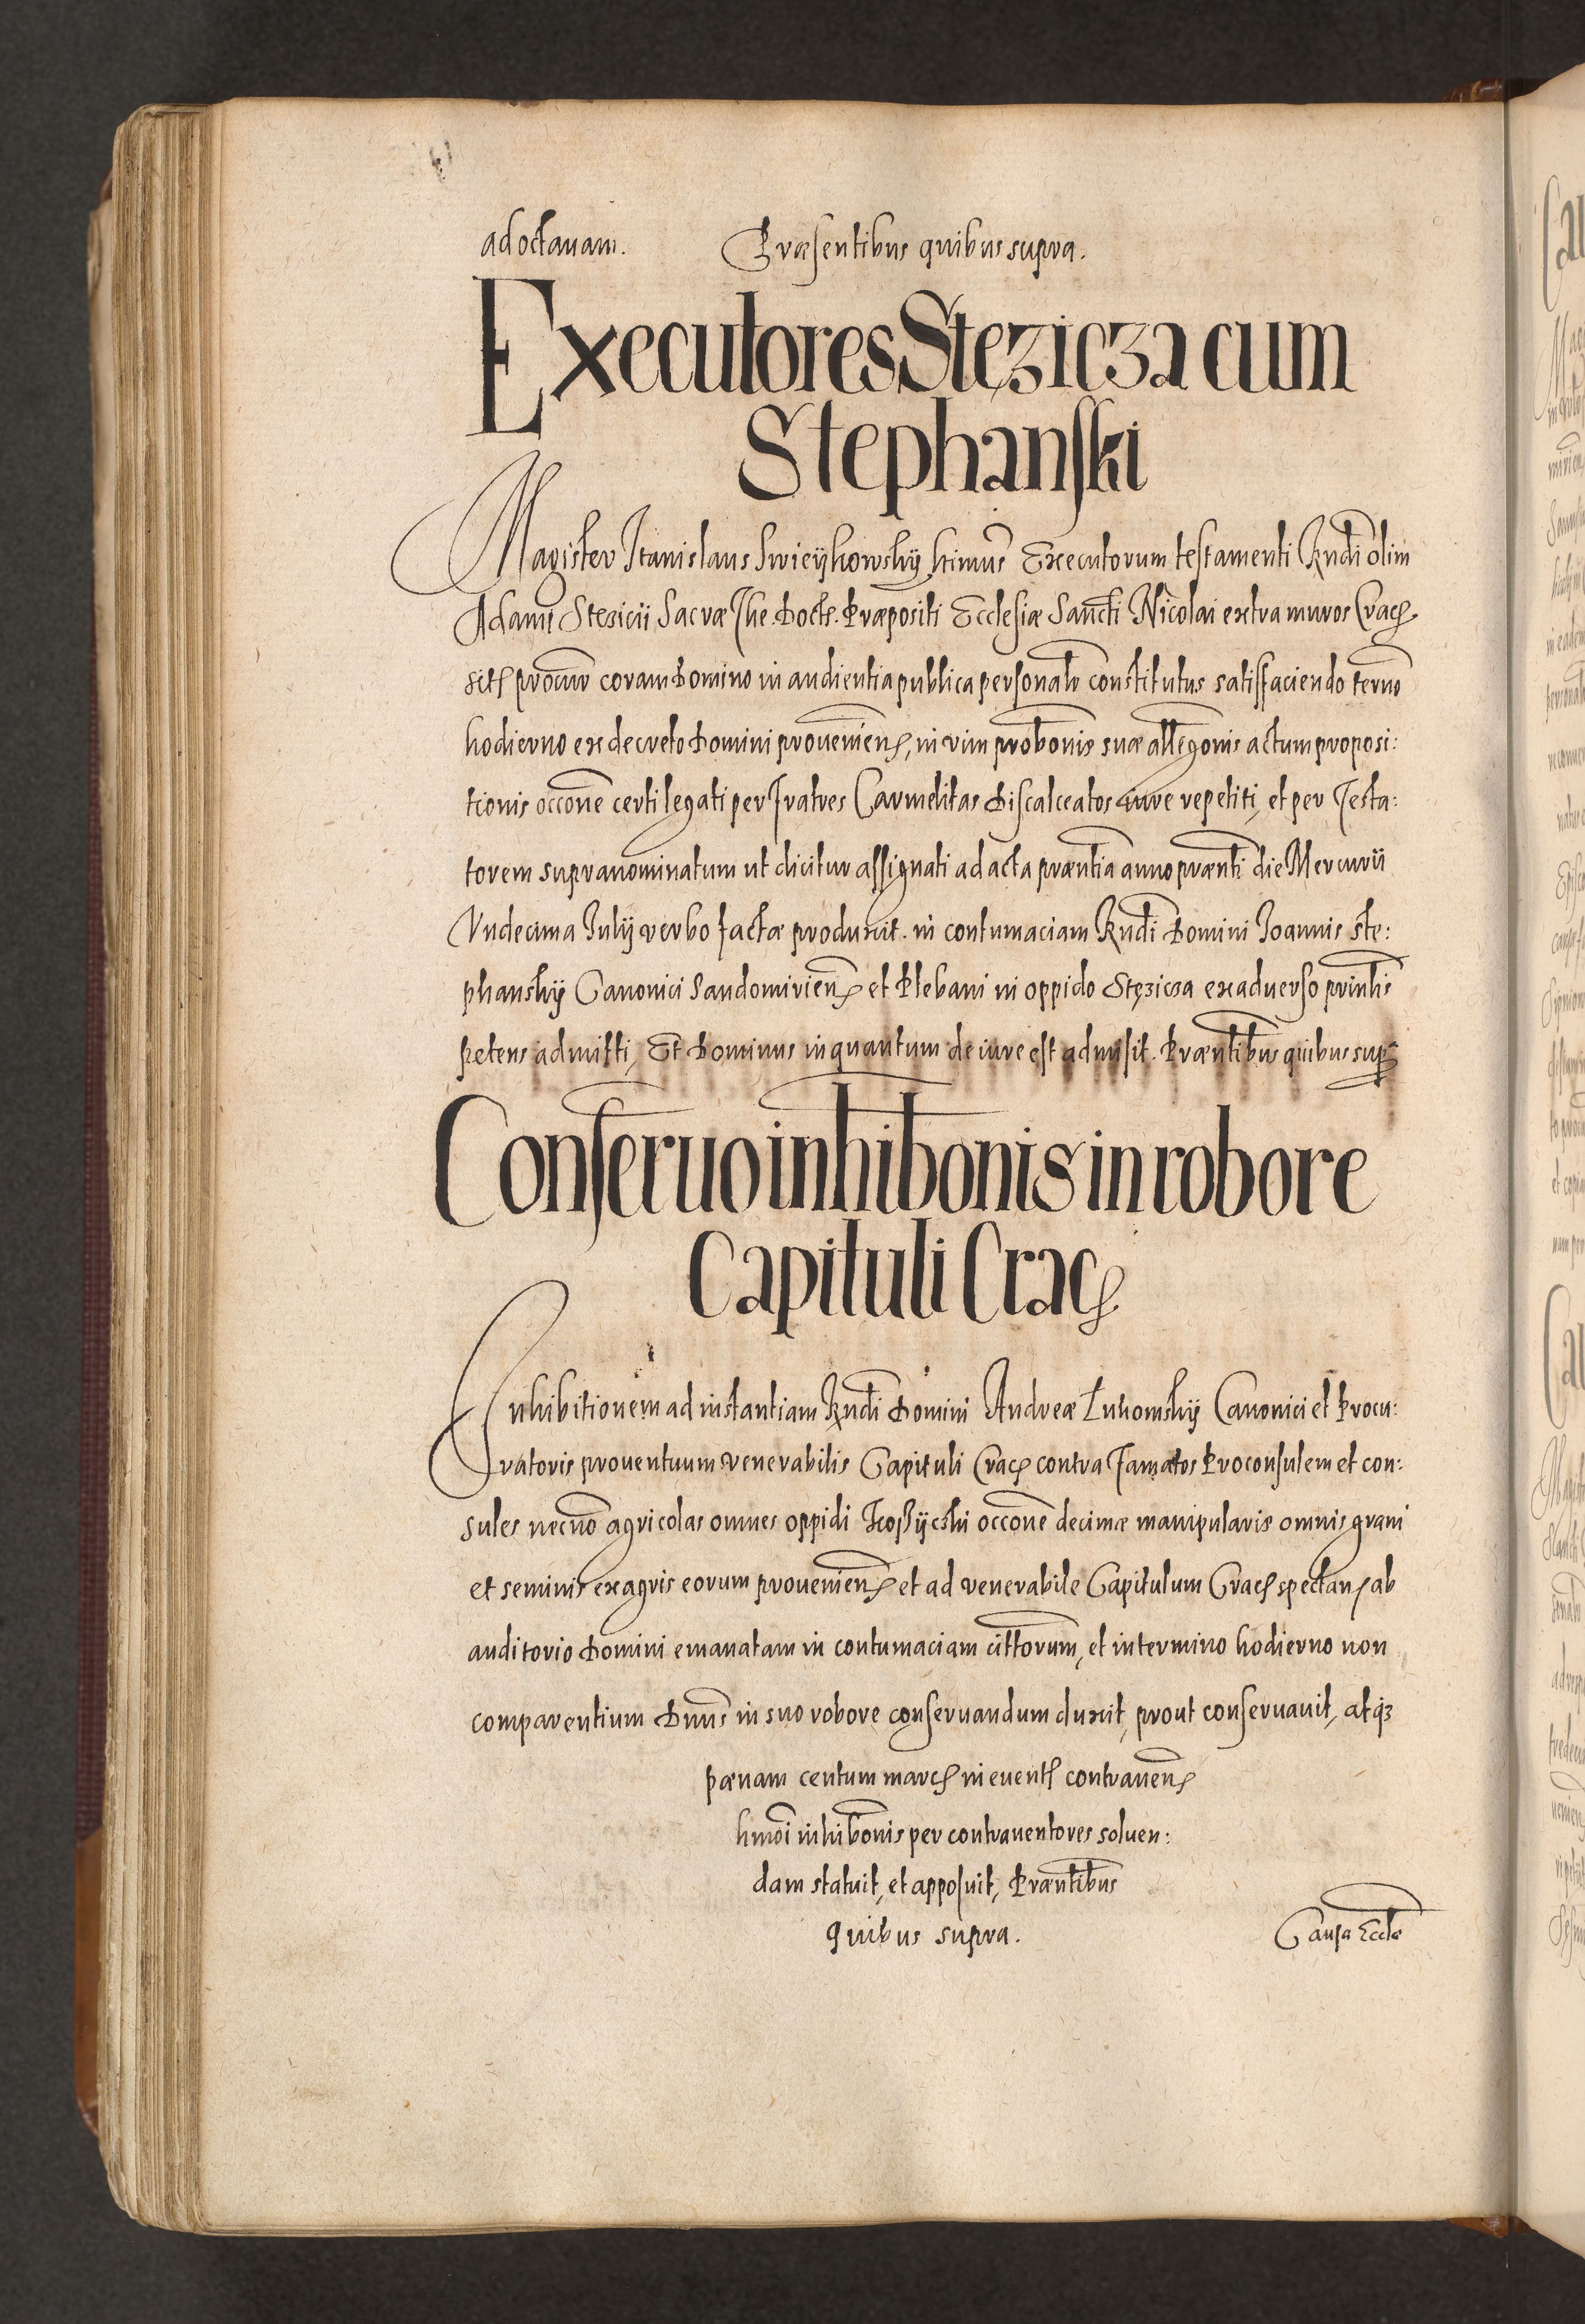 ad octauam. Præsentibus quibus supra.
Executores Stęzicza cum
Stephanski
Magister Stanislaus Swieykowsky ltimus Executorum testamenti Rndi olim
Adami Stezicii Sacræ The. Doctꝭ. Præpositi Ecclesiæ Sancti Nicolai extra muros Cracꝭ
procur coram Domino in audientia publica personalr constitutus satisfaciendo termo
hodierno ex decreto Domini prouenienꝭ, in vim probonis suæ allegonis actum proposi:
tionis occone certi legati per Fratres Carmelitas Discalceatos iure repetiti, et per Testa:
torem supranominatum ut dicitur assignati ad acta præntia anno prænti die Mercurii
Vndecima Julij verbo factæ produxit. in contumaciam Rndi Domini Joannis Ste:
phansky Canonici Sandomirienꝭ et Plebani in oppido Stęzicza ex aduerso printis
petens admitti, Et Dominus in quantum de iure est admisit. Præntibus quibus supr
Conseruo inhibonis in robore
Capituli Cracꝭ
Inhibitionem ad instantiam Rndi Domini Andreæ Łukomsky Canonici et Procu:
ratoris prouentuum venerabilis Capituli Cracꝭ contra Famatos Proconsulem et con:
sules necno agricolas omnes oppidi occone decimæ manipularis omnis grani
et seminis ex agris eorum prouenienꝭ et ad venerabile Capitulum Cracꝭ spectanꝭ ab
auditorio Domini emanatam in contumaciam cittorum, et in termino hodierno non
comparentium Dnus in suo robore conseruandum duxit, prout conseruauit, atqꝫ
pænam centum marcꝭ in euentꝭ contrauenꝭ
hmoi inhibonis per contrauentores soluen:
dam statuit, et apposuit, Præntibus
quibus supra. Causa Eccle